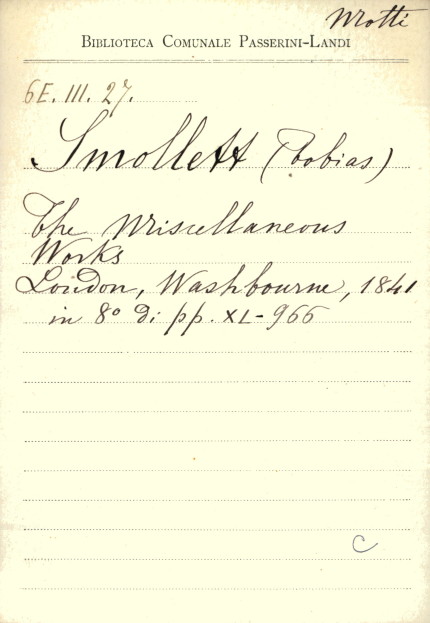 Motti
BIBLIOTECA COMUNALE PASSERINI-LANDI
6E. III. 27.
Smollett (Tobias)
The Miscellaneous
Works
London, Washbourne, 1841
in 8° di pp. XL-966
C